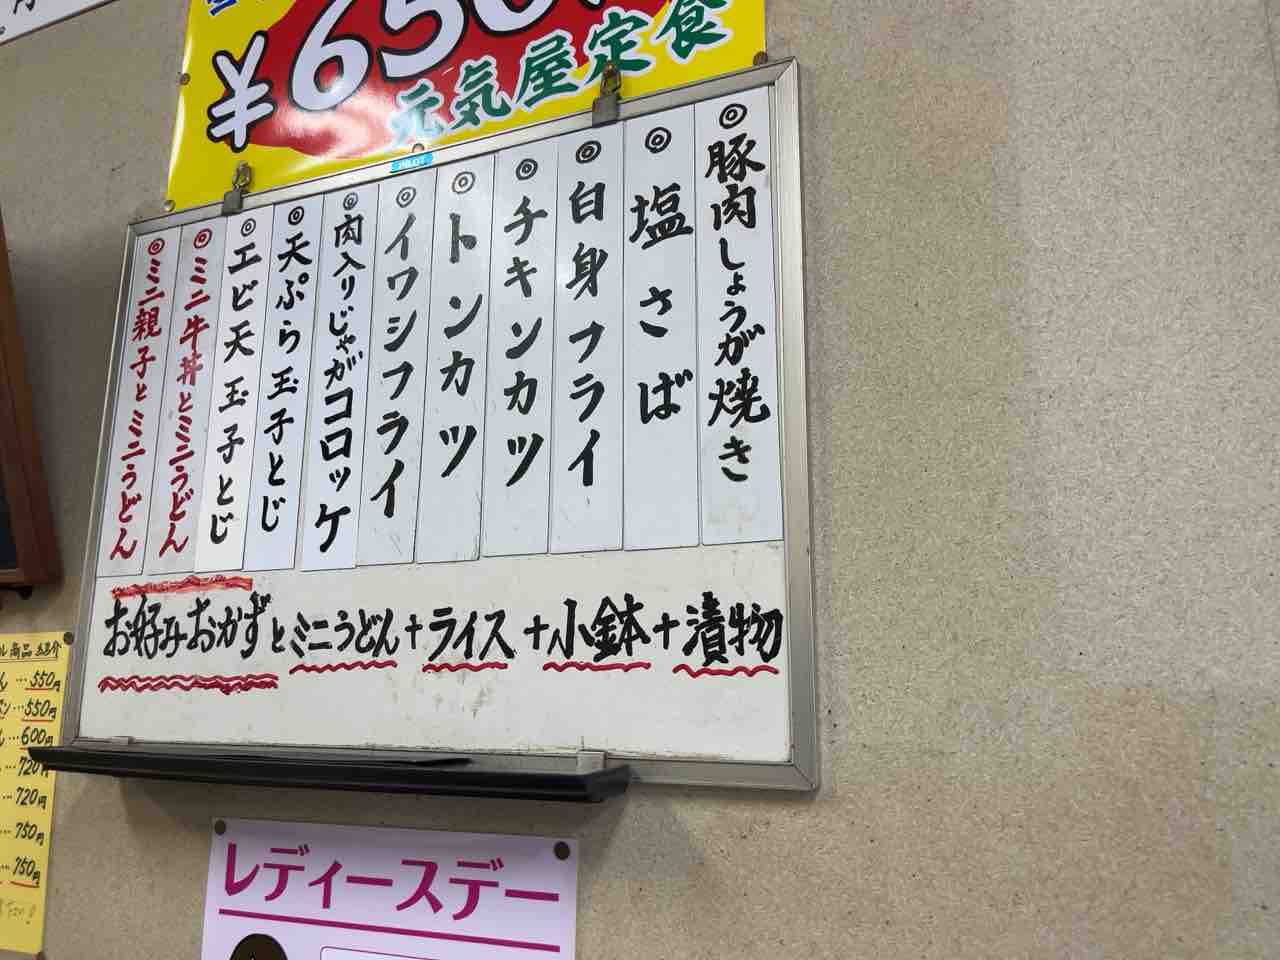 ¥650
元気屋定食
PILOT
◎豚肉しょうが焼き
◎塩さば
◎白身フライ
◎チキンカツ
◎トンカツ
◎イワシフライ
◎肉入りじゃがコロッケ
◎天ぷら玉子とじ
◎エビ天玉子とじ
◎ミニ牛丼とミニうどん
◎ミニ親子とミニうどん
お好みおかずとミニうどん+ライス+小鉢+漬物
商品紹介
…550円
…550円
…600円
…720円
…720円
…750円
…750円
レディースデー